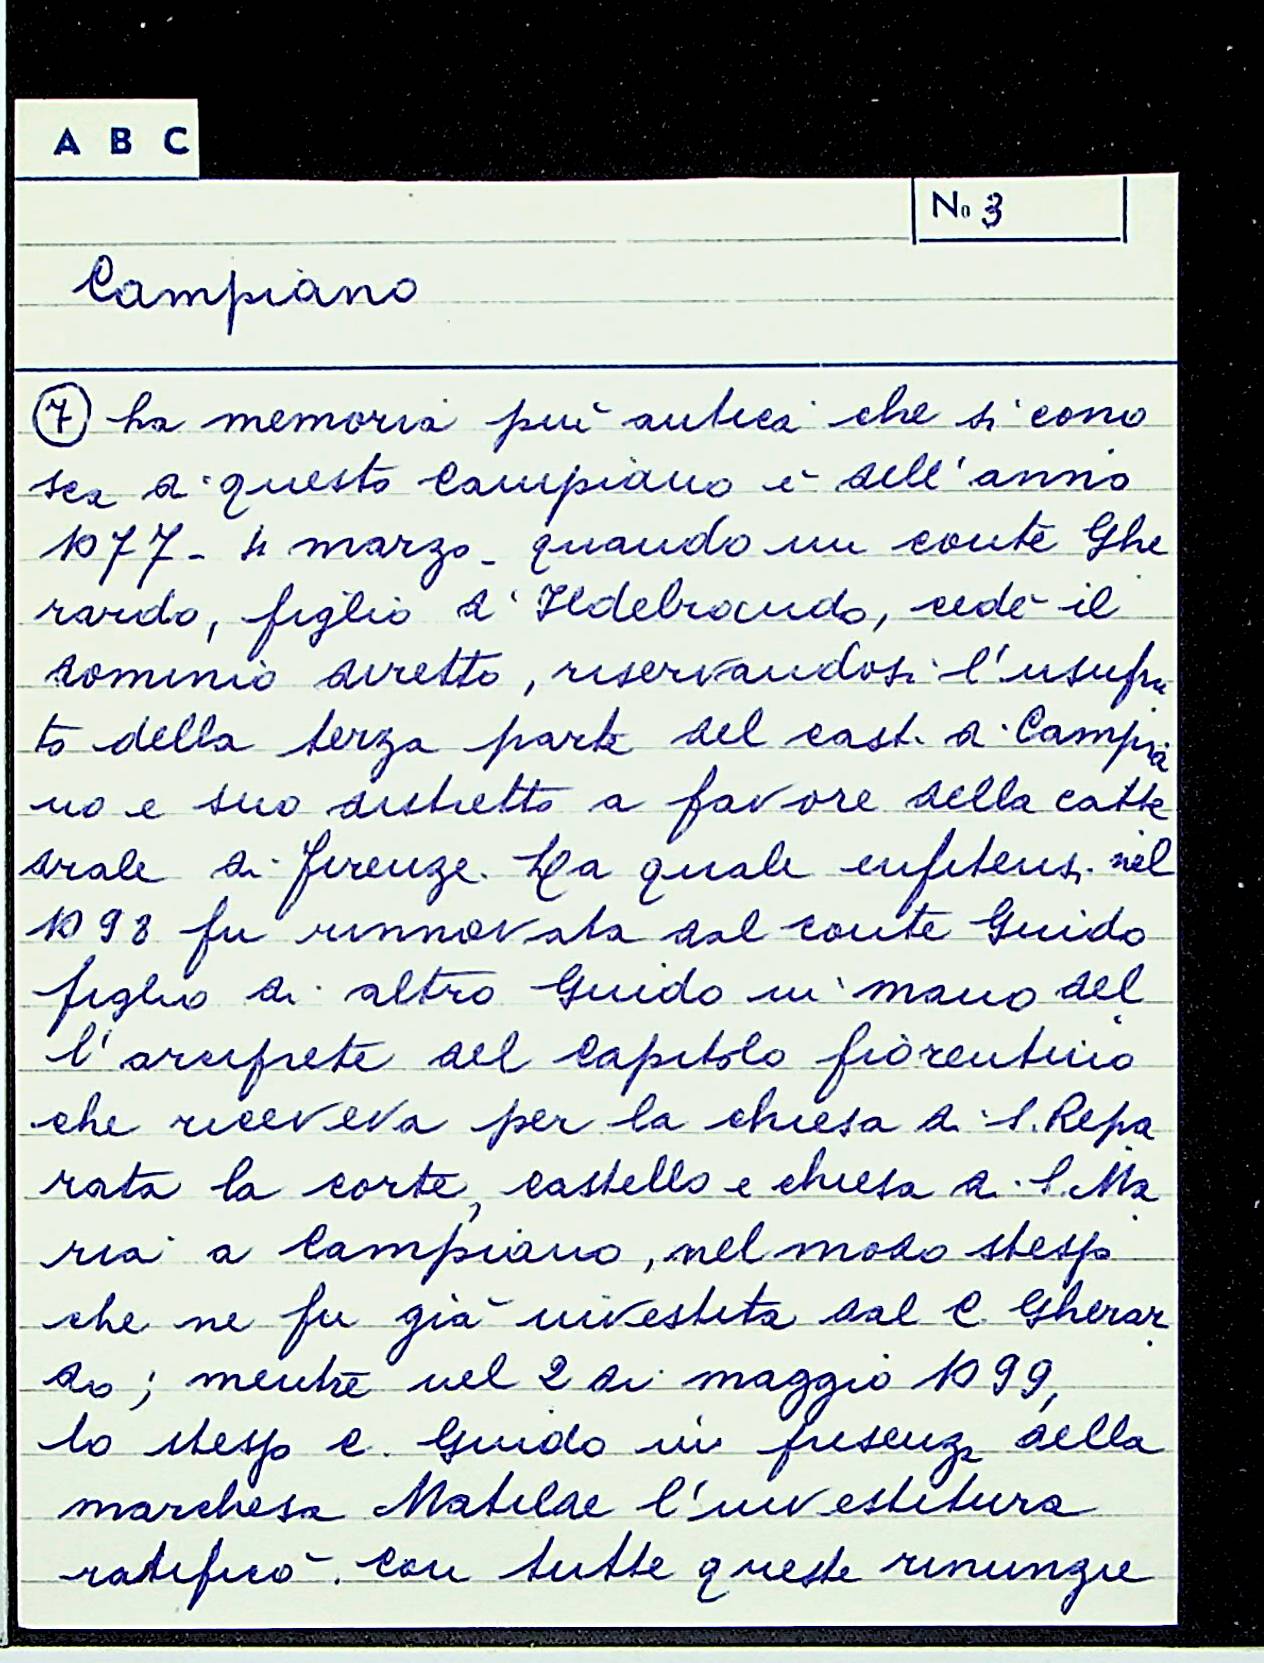 A B C
No 3
Campiano
7 La memoria più antica che si cono
sca di questo Campiano è dell'anno
1077 - 4 marzo - quando un conte Ghe
rardo, figlio d'Ildebrando, cedè il
dominio diretto, riservandosi l'usufru
to della terza parte del cast. di Campia
no e suo distretto a favore della catte
drale di Firenze. La quale enfiteusi nel
1098 fu rinnovata dal conte Guido
figlio di altro Guido in mano del
l'arciprete del Capitolo fiorentino
che riceveva per la chiesa di S. Repa
rata la corte, castello e chiesa di S. Ma
ria a Campiano, nel modo stesso
che ne fu già investita dal C. Gherar
do; mentre nel 2 di maggio 1099,
lo stesso C. Guido in presenza della
marchesa Matilde l'investitura
ratificò. Con tutte queste rinunzie